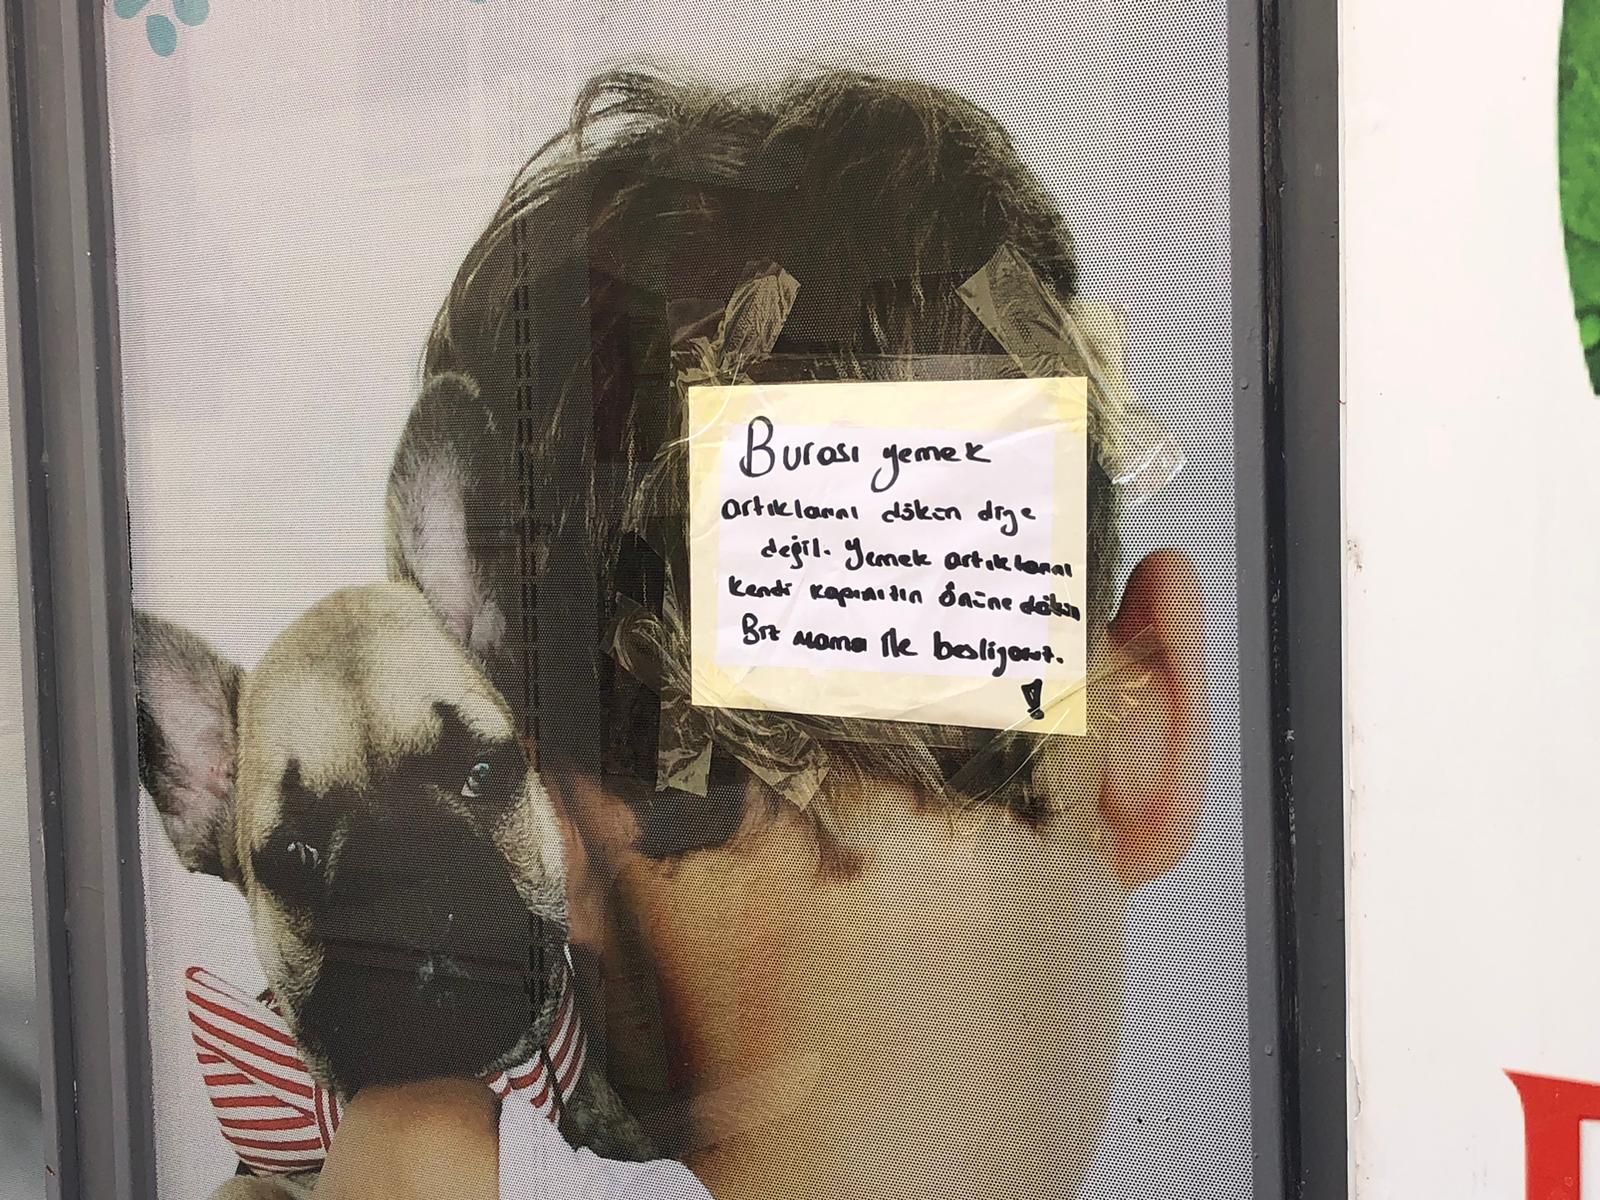 Burası yemek
artıklarını dökün diye
değil. Yemek artıklarını
kendi kapınızın önüne dökün
Biz mama ile besliyoruz.
!